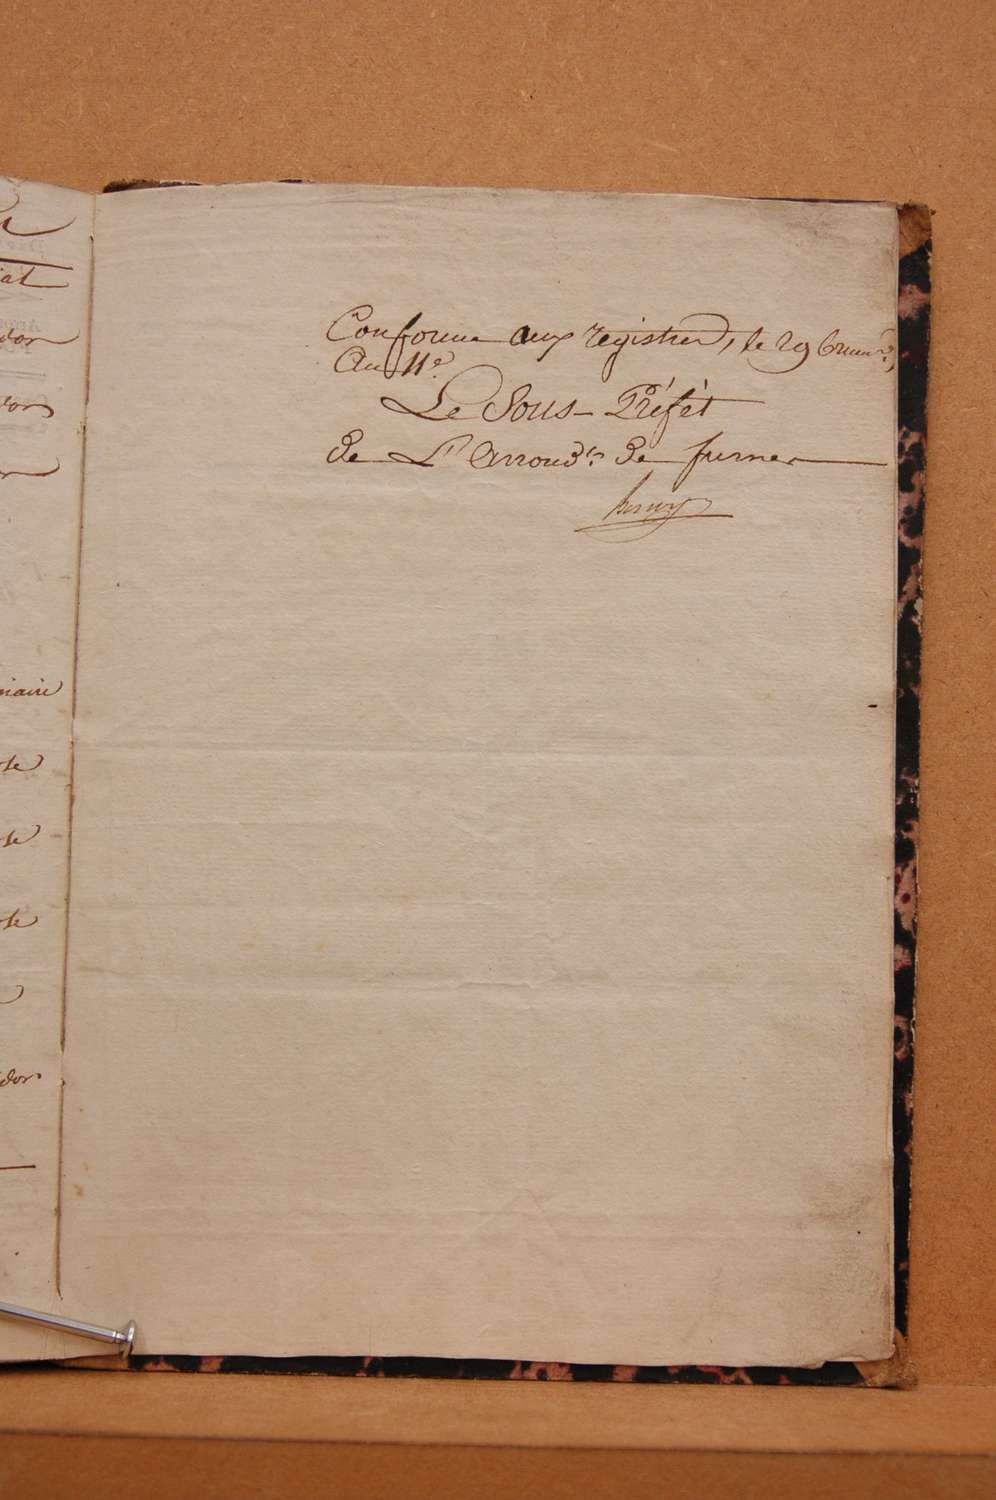 Conforme aux registres, le 29 brum.re,
An 11e.
Le Sous-Préfèt
de L'arrond.t de furnes